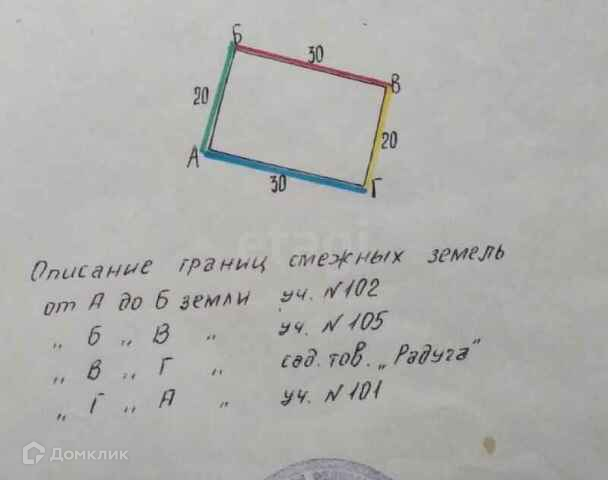 Б
30
В
20
20
А
30
Г
Описание границ смежных земель
от А до Б земли уч. N102
„ Б „ В „ уч. N105
„ В „ Г „ сад. тов. „Радуга"
„ Г „ А „ уч. N101
Домклик